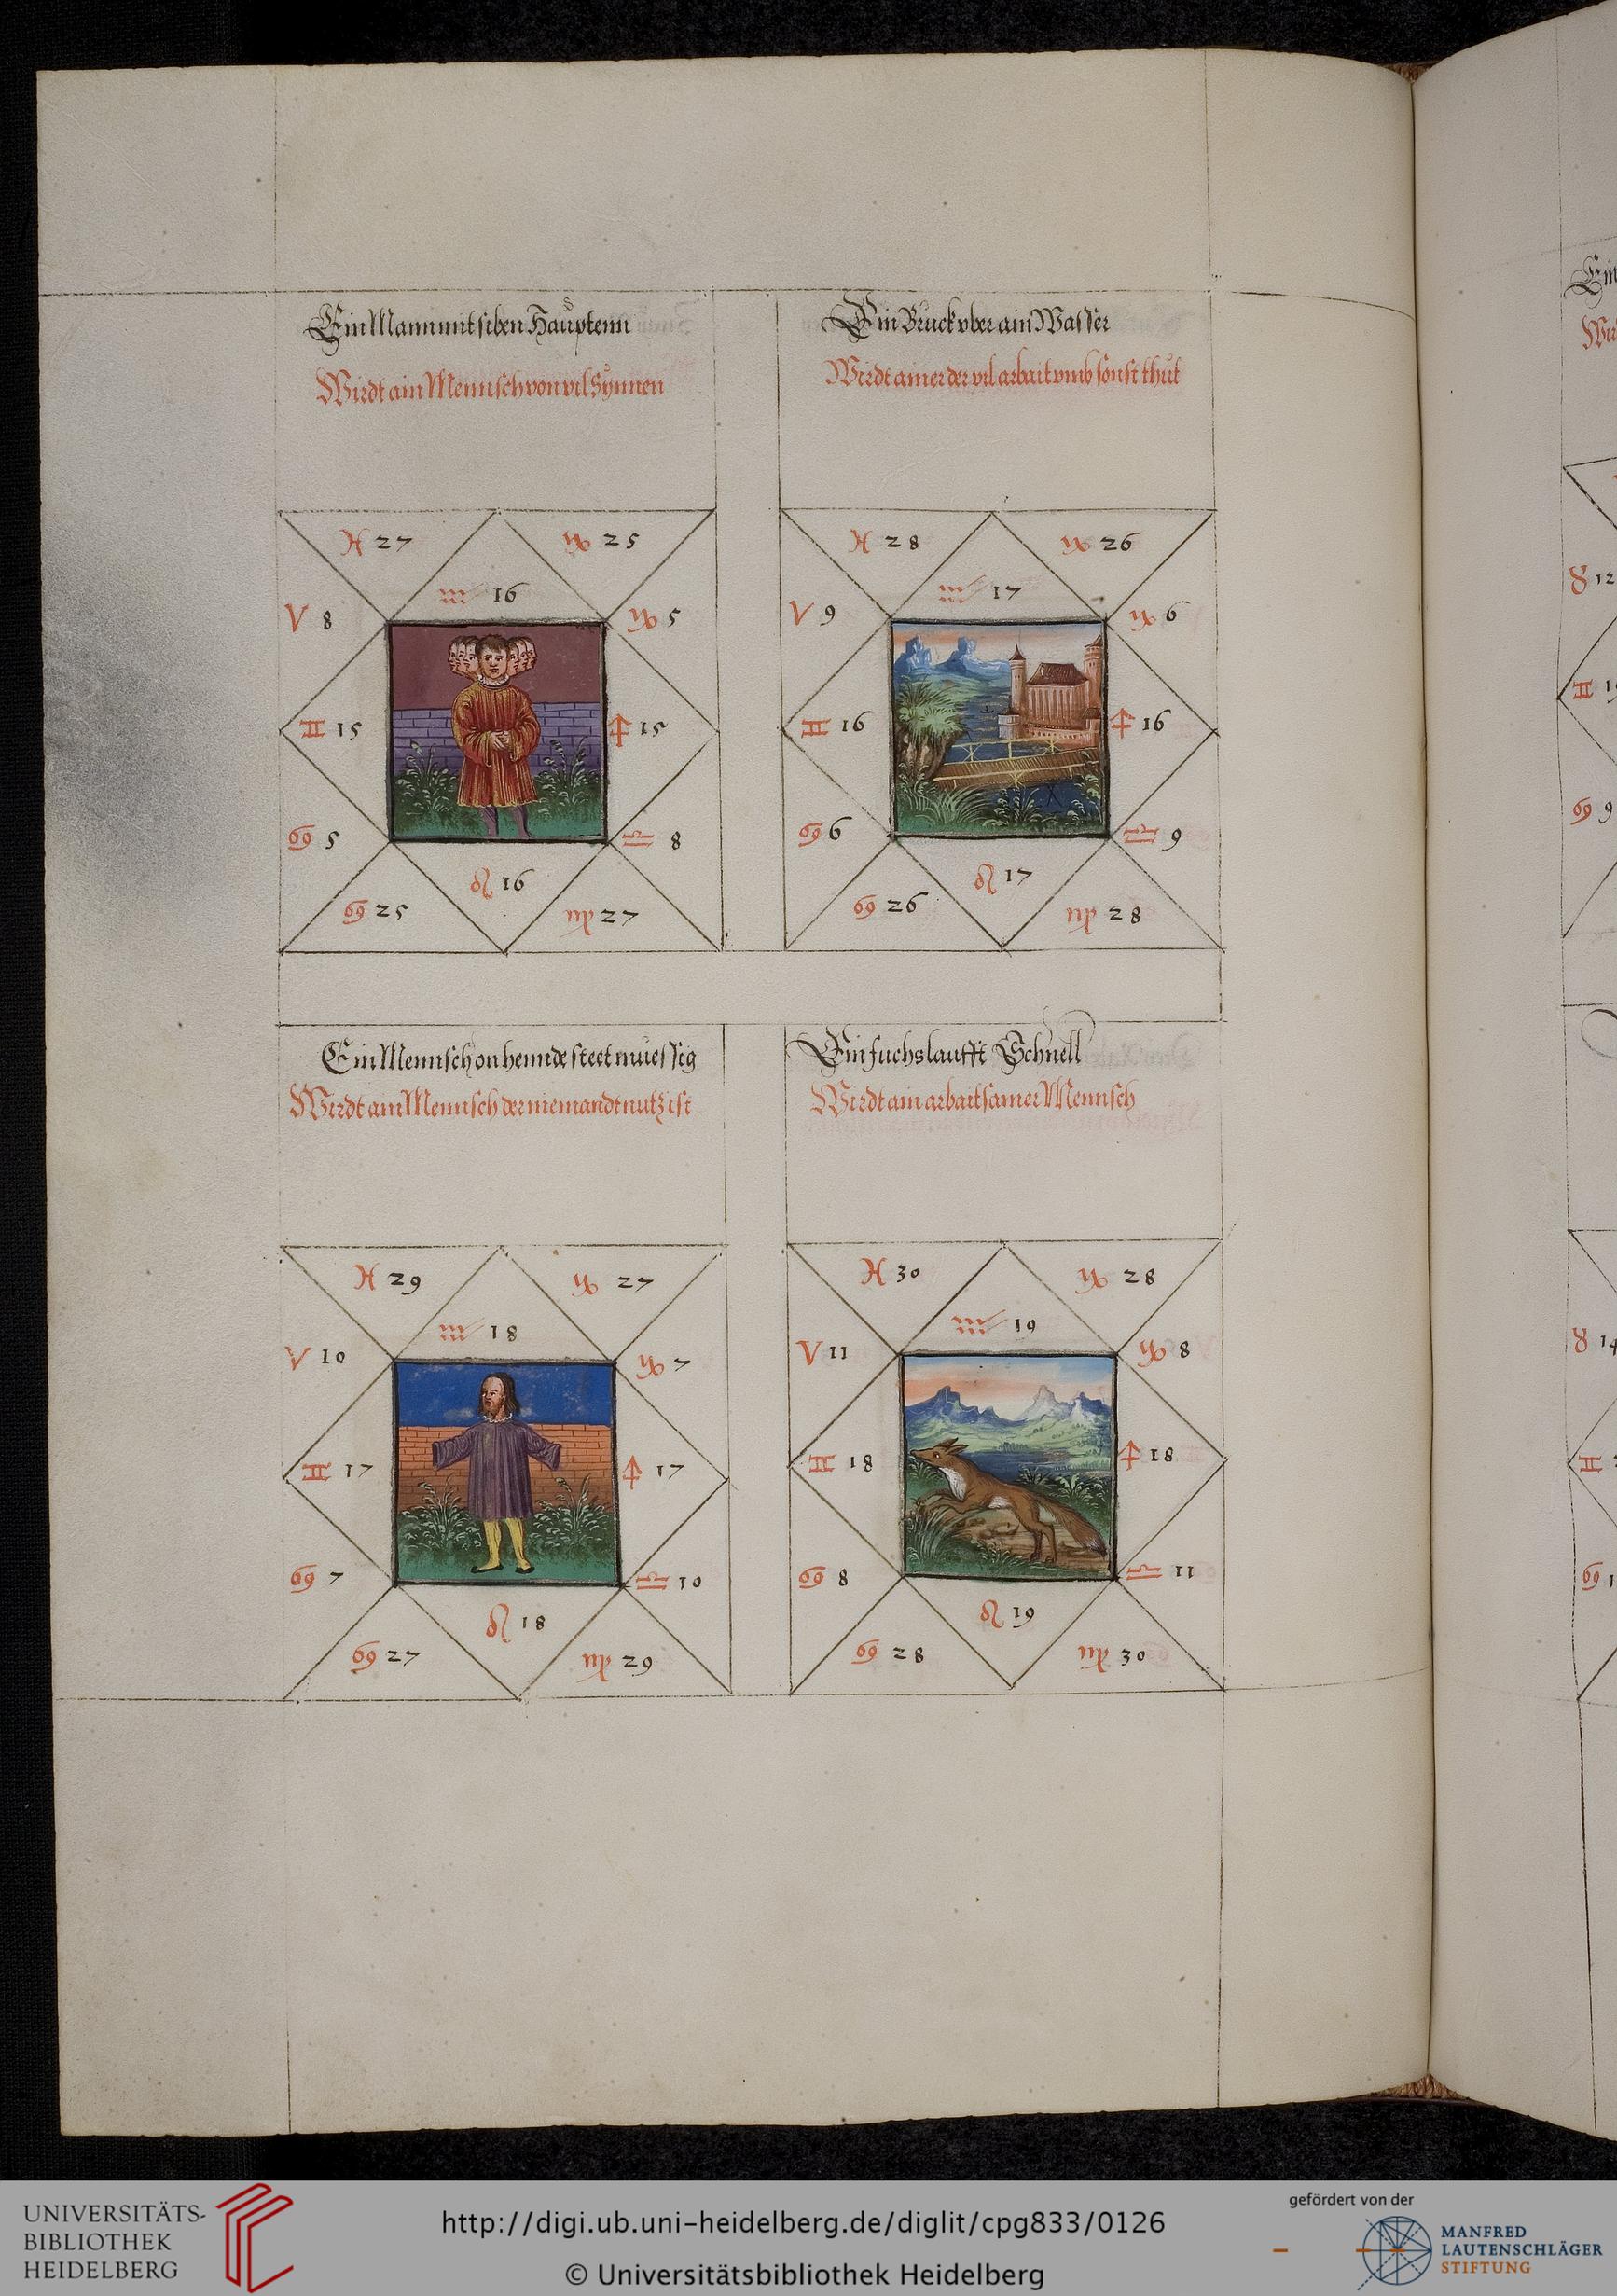 Ein Mann mit siben Hauptenn
Wirdt ain Mennsch von vil Synnen
♓ 27
♑ 25
♒ 16
♈ 8
♑ 5
♊ 15
♐ 15
♋ 5
♎ 8
♌ 16
♋ 25
♍ 27
Ein Bruck vber ain Wasser
Wirdt ainer der vil arbait vmb sonst thut
♓ 28
♑ 26
♒ 17
♈ 9
♑ 6
♊ 16
♐ 16
♋ 6
♎ 9
♌ 17
♋ 26
♍ 28
Ein Mennsch on hennde steet muessig
Wirdt ain Mennsch der niemandt nutz ist
♓ 29
♑ 27
♒ 18
♈ 10
♑ 7
♊ 17
♐ 17
♋ 7
♎ 10
♌ 18
♋ 27
♍ 29
Ein fuchs laufft Schnell
Wirdt ain arbaitsamer Mennsch
♓ 30
♑ 28
♒ 19
♈ 11
♑ 8
♊ 18
♐ 18
♋ 8
♎ 11
♌ 19
♋ 28
♍ 30
Ein
♉ 12
♊
♋ 9
♉ 14
♊
♋
UNIVERSITÄTS-
BIBLIOTHEK
HEIDELBERG
http://digi.ub.uni-heidelberg.de/diglit/cpg833/0126
© Universitätsbibliothek Heidelberg
gefördert von der
MANFRED
LAUTENSCHLÄGER
STIFTUNG